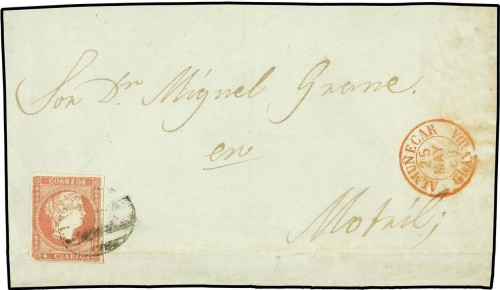 Son Dr. Miguel Grane.
en
Motril;
CORREOS
4 CUARTOS
ALMUÑECAR
25
MAY